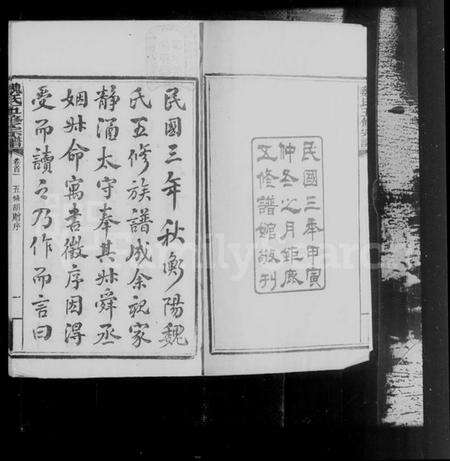 民國三年甲寅
仲冬之月鉅鹿
五修譜館敬刊
魏氏五修宗譜
卷首
五修胡財序
一
民國三年秋衡陽魏
氏五修族譜成余祝家
靜涵太守奉其叔舜丞
姻叔命寓書徵序因得
受而讀之乃作而言曰